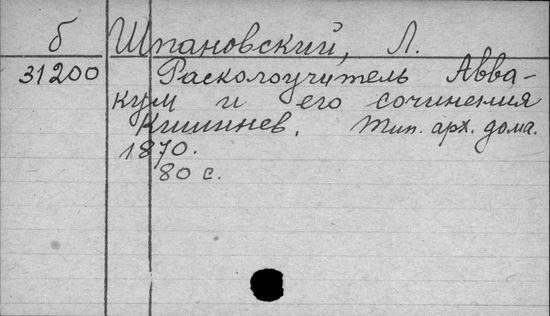 б Шпановский, Л.
31200 Расколоучитель Авва-
кум и его сочинения
Кишинев. Тип. арх. дома.
1870.
80 с.